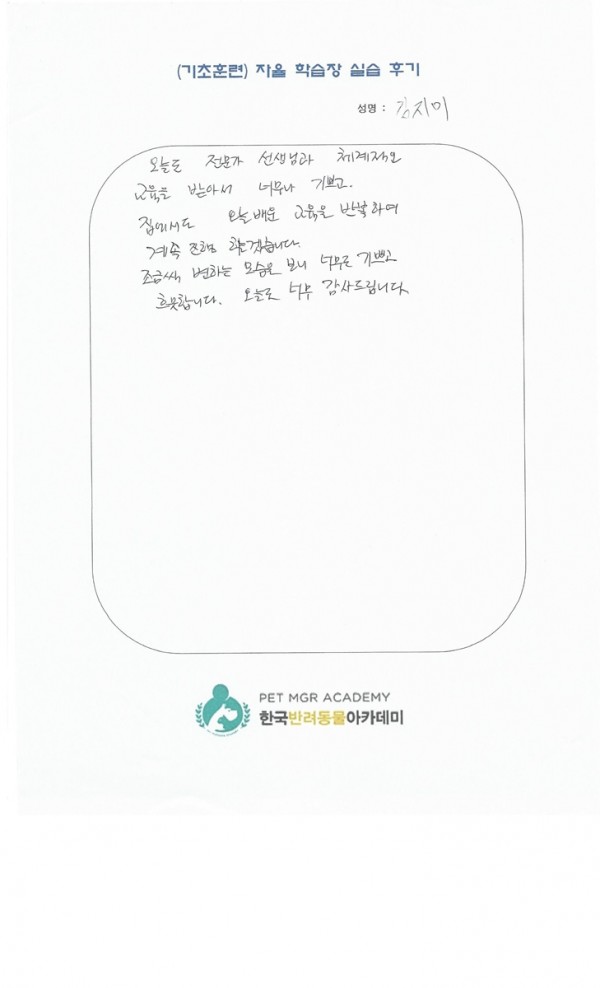 (기초훈련)자율 학습장 실습 후기
성명 : 김지미
오늘도 전문가 선생님과 체계적으
교육을 받아서 너무나 기쁘고.
집에서도 오늘 배운 교육을 반복하며
계속 하겠습니다.
조금씩 변하는 모습을 보니 너무도 기쁘고
흐뭇합니다. 오늘도 너무 감사드립니다
PET MGR ACADEMY
한국반려동물아카데미